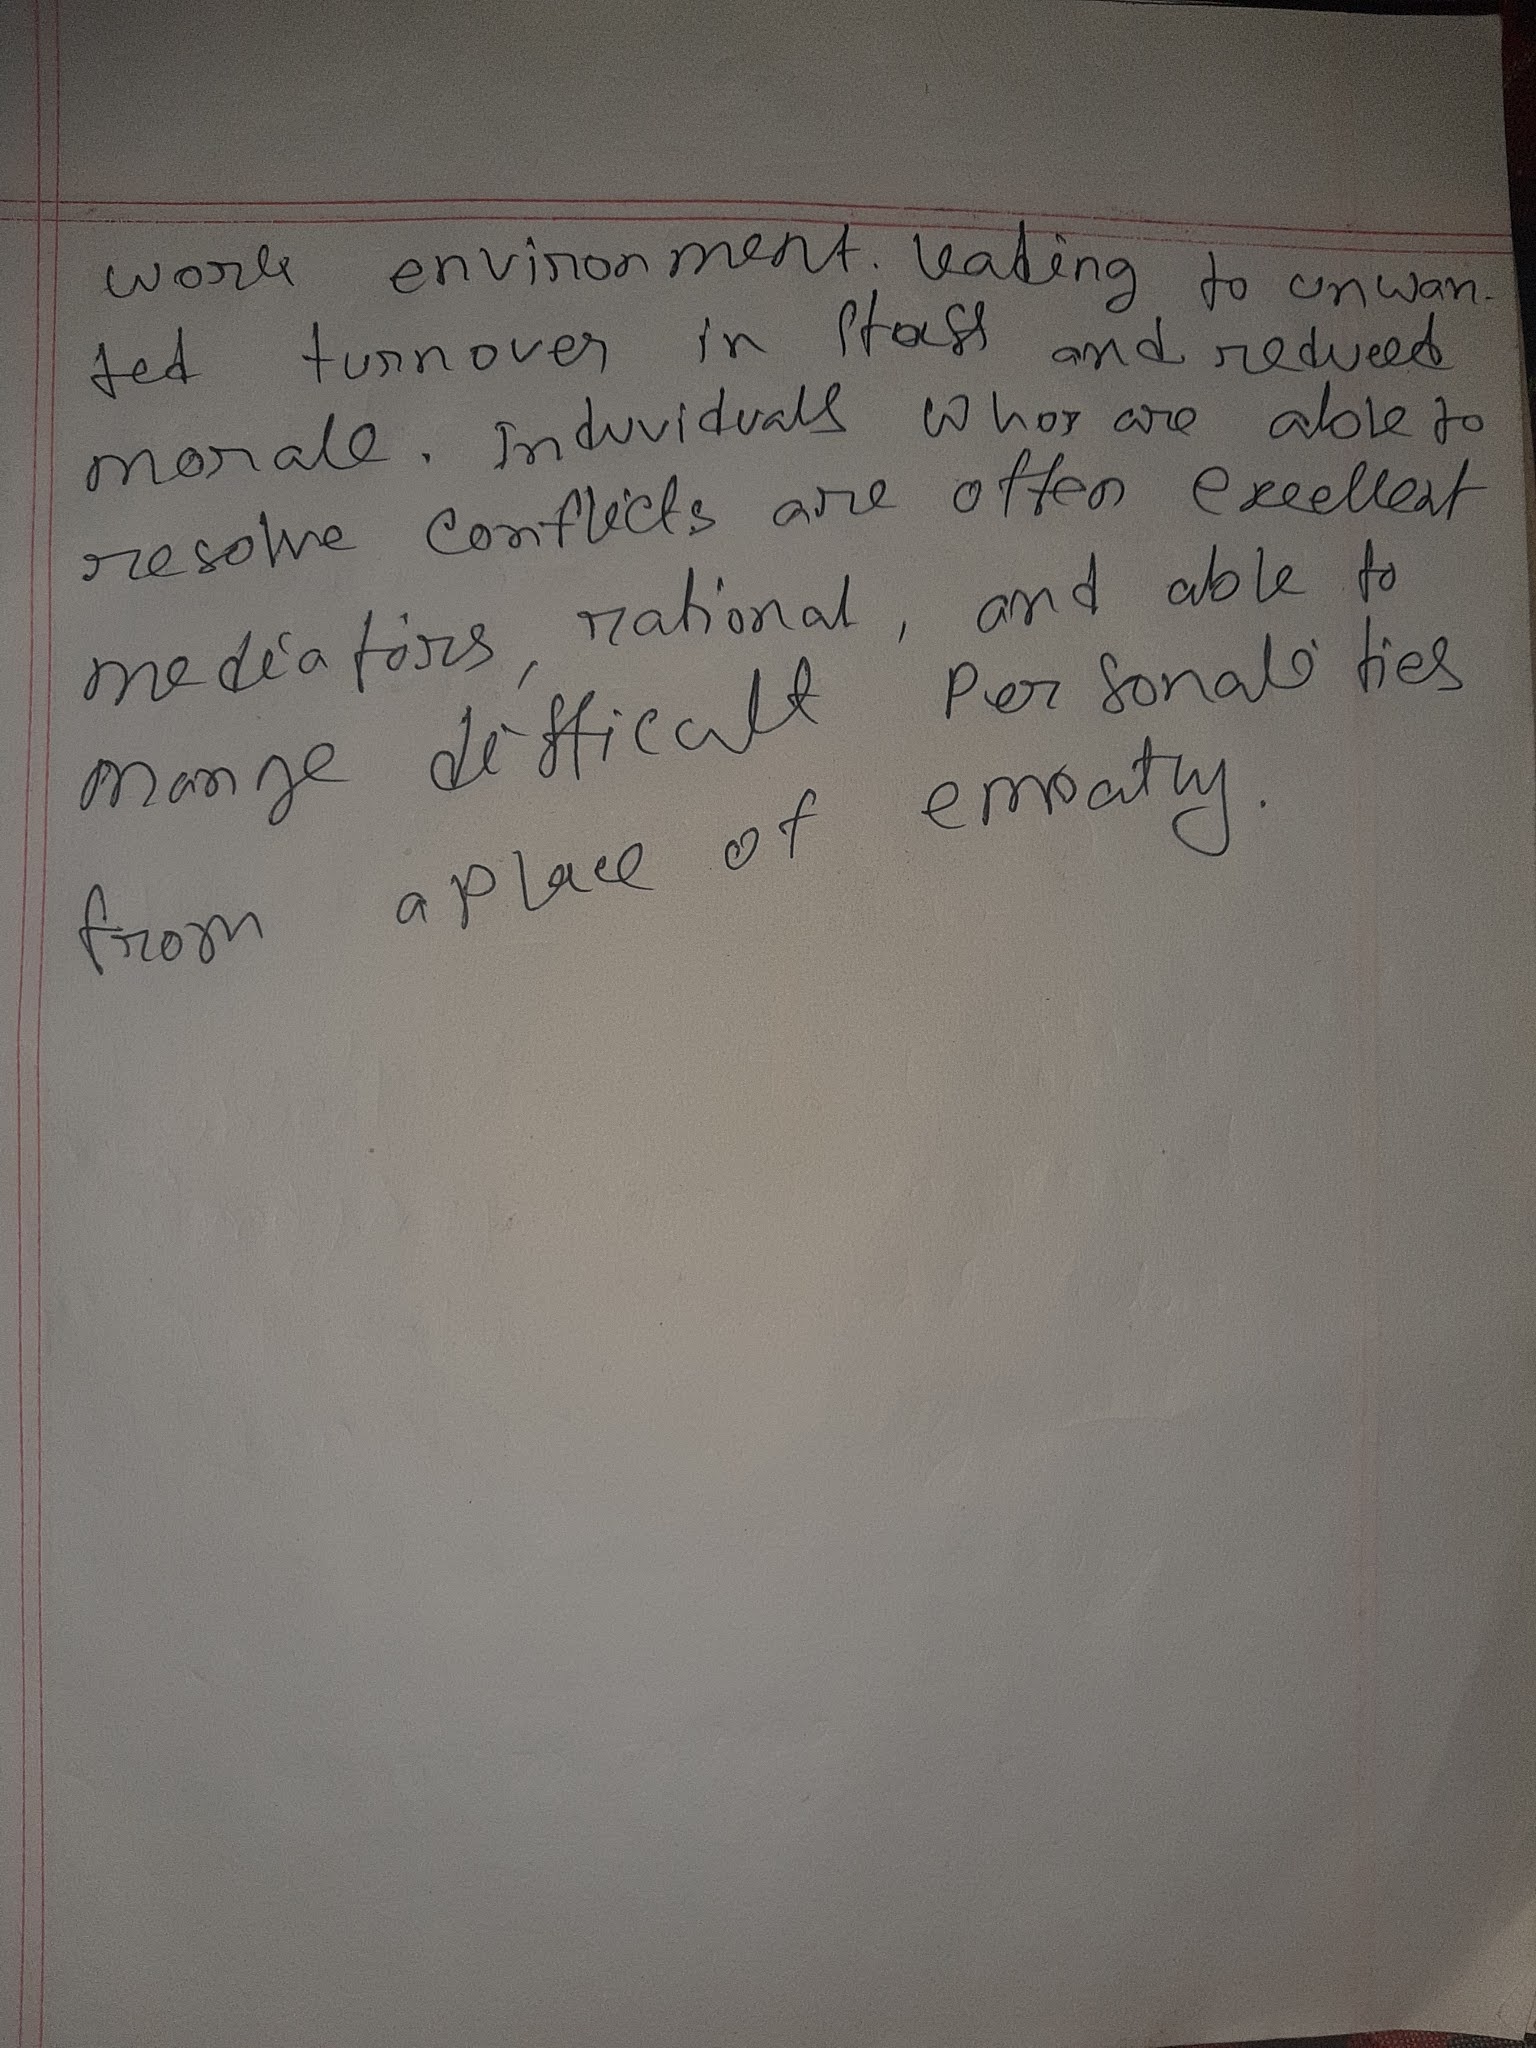 work environment. leading to unwan-
ted turnover in staff and reduced
morale. Induviduals who are able to
resolve conflicts are often excellent
mediators, rational, and able to
mange difficult personalities
from a place of empathy.